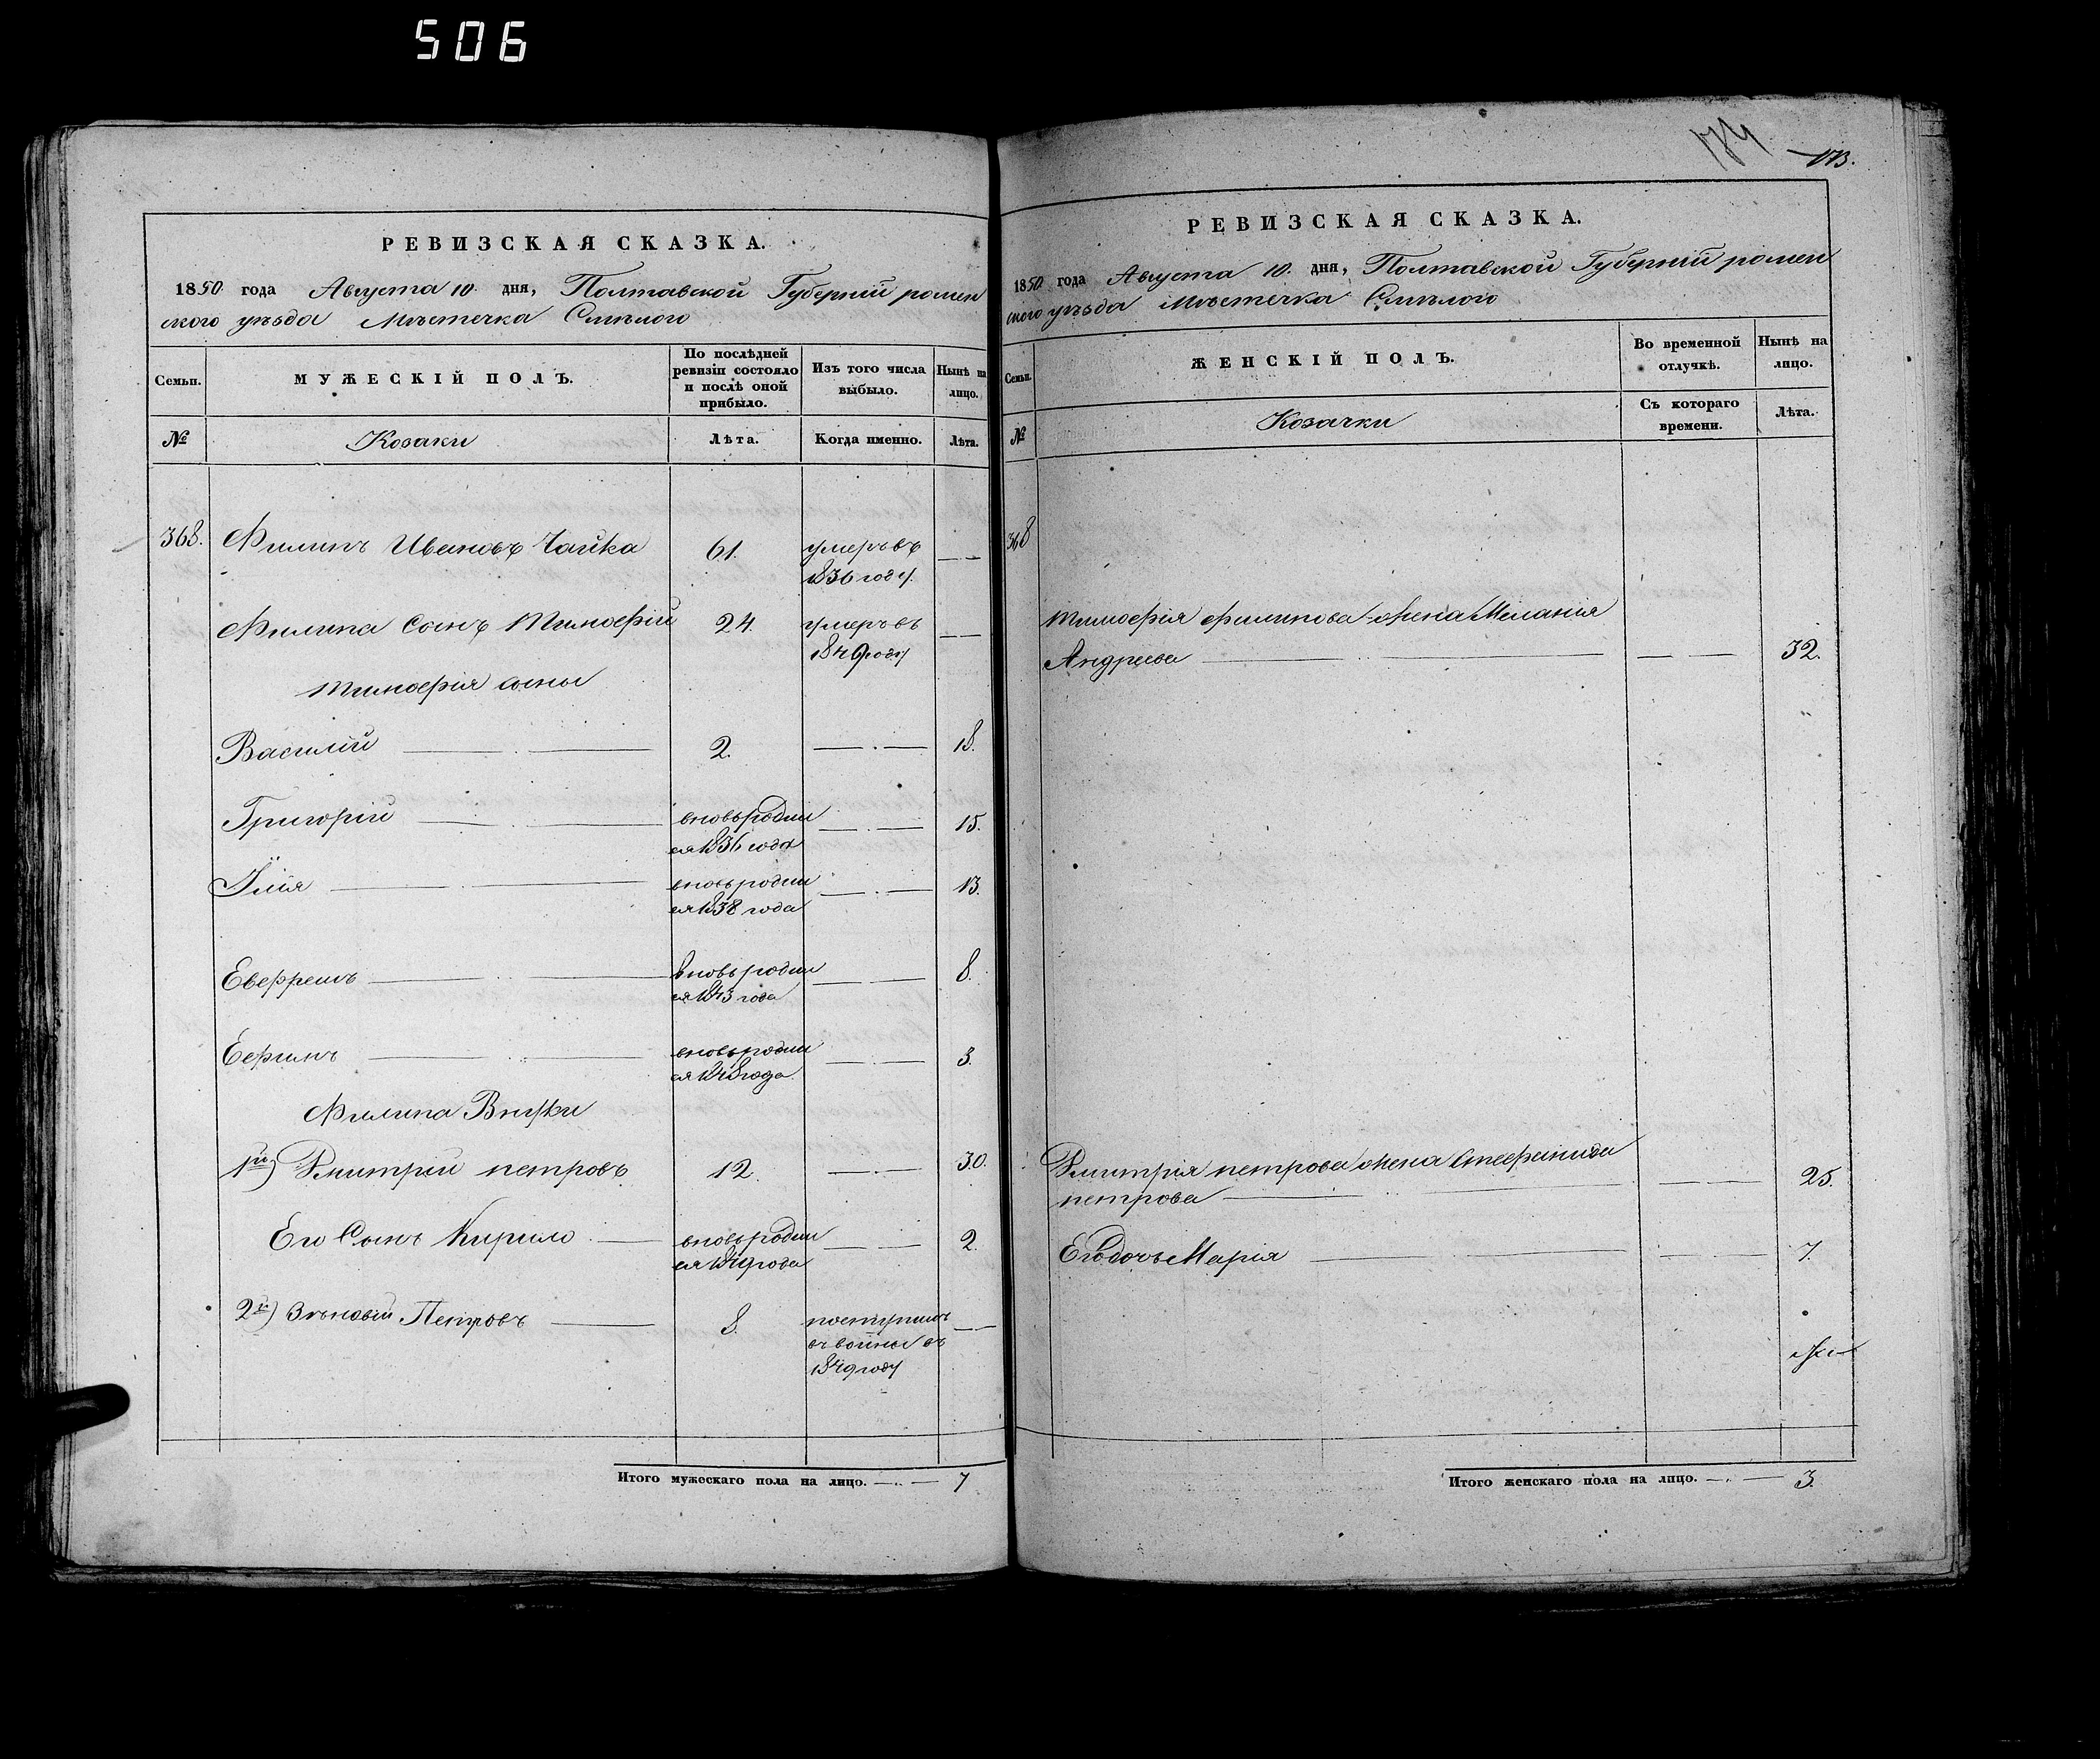 506
РЕВИЗСКАЯ СКАЗКА.
1850 года Августа 10. дня, Полтавской Губерніи ромен
ского уѣзда Мѣстечка Смѣлого
Семьи.
МУЖЕСКІЙ ПОЛЪ.
По послѣдней ревизіи состояло и послѣ оной прибыло.
Изъ того числа выбыло.
Нынѣ на лицо.
№
Козаки
Лѣта.
Когда именно.
Лѣта.
368. Филипъ Ивановъ Чайка 61. умеръ въ
1836 году.
Филипа Сынъ Тимофѣй 24. умеръ въ
1849 году
Тимофія сыны
Василій 2. 18.
Григорій вновь родил 15.
ся 1836 года
Илія вновь родил 13.
ся 1838 года
Евфремъ вновь родил 8.
ся 1843 года
вновь родил 3.
ся 1848 года
Филипа Внуки
1й) Дмитрій петровъ 12. 30.
Его Сынъ Кирило вновь родил 2.
ся 1849 года
2й) Зѣновій Петровъ 8. поступилъ
въ воины въ
1849 году
Итого мужескаго пола на лицо. 7
173.
РЕВИЗСКАЯ СКАЗКА.
1850 года Августа 10. дня, Полтавской Губерніи ромен
ского уѣзда Мѣстечка Смѣлого
Семьи.
ЖЕНСКІЙ ПОЛЪ.
Во временной отлучкѣ.
Нынѣ на лицо.
№
Козачки
Съ котораго времени.
Лѣта.
368
Тимофія филипова жена Меланія
Андреева 32.
Дмитрія петрова жена Стефанида
петрова 25.
Его дочь Марія 7.
Итого женскаго пола на лицо. 3.